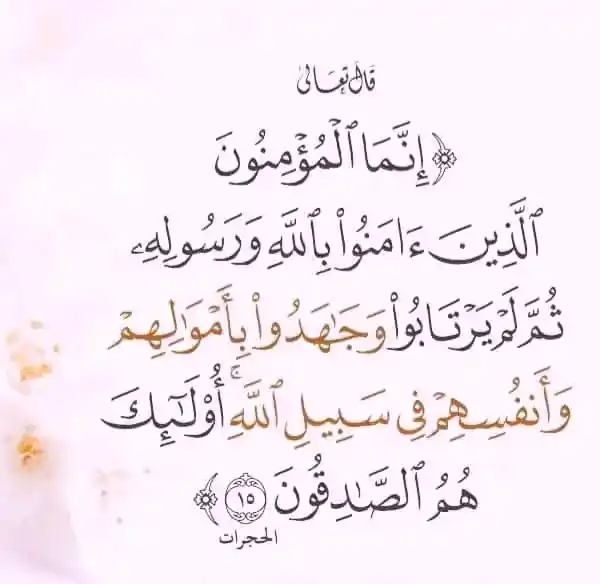 قال تعالى
﴿ إِنَّمَا ٱلْمُؤْمِنُونَ
ٱلَّذِينَ ءَامَنُوا۟ بِٱللَّهِ وَرَسُولِهِۦ
ثُمَّ لَمْ يَرْتَابُوا۟ وَجَـٰهَدُوا۟ بِأَمْوَٰلِهِمْ
وَأَنفُسِهِمْ فِى سَبِيلِ ٱللَّهِ ۚ أُو۟لَـٰٓئِكَ
هُمُ ٱلصَّـٰدِقُونَ ١٥ ﴾
الحجرات